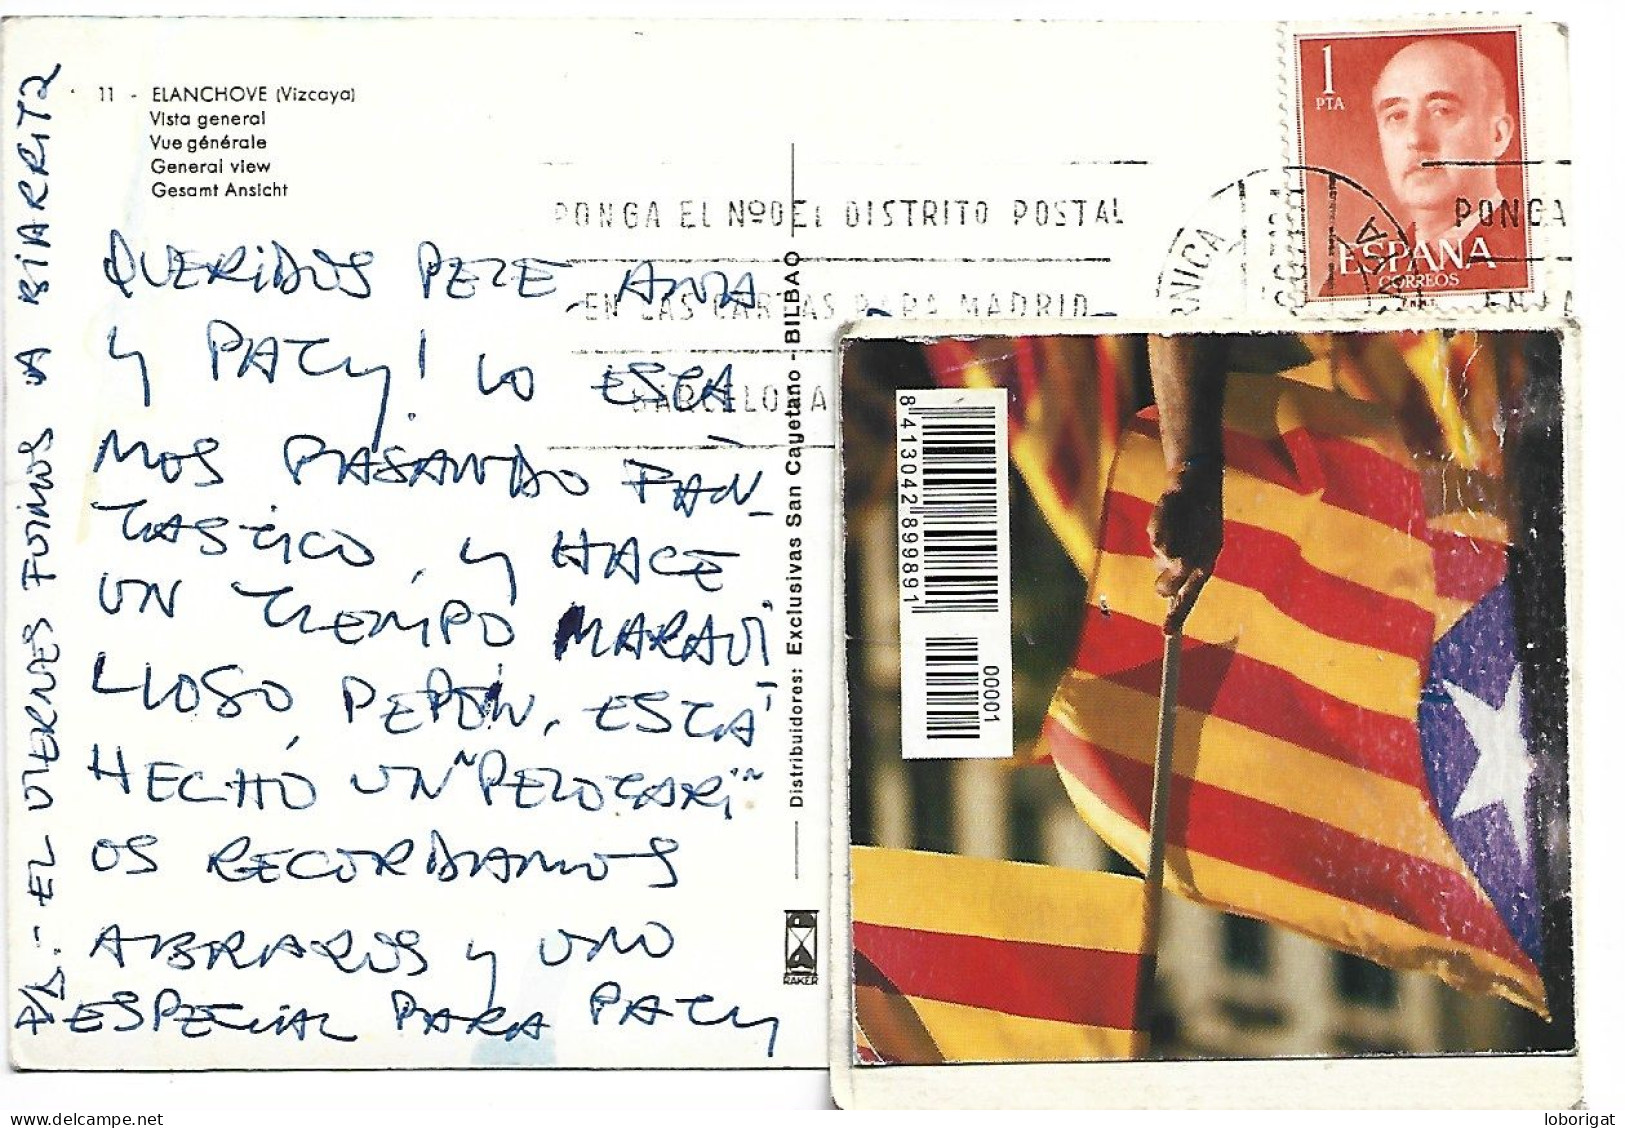 11 - ELANCHOVE (Vizcaya)
Vista general
Vue générale
General view
Gesamt Ansicht
1
PTA
ESPAÑA
CORREOS
PONGA EL Nº DEL DISTRITO POSTAL
EN LAS CARTAS PARA MADRID
BARCELONA
PONGA
EN LA
QUERIDOS PEPE, ANA
Y PATY! LO ESTA
MOS PASANDO FAN-
TASTICO, Y HACE
UN TIEMPO MARAVI
LLOSO, PEPÓN, ESTÁ
HECHO UN "PELOTARI"
OS RECORDAMOS
ABRAZOS Y UNO
ESPECIAL PARA PATY
P.D.- EL VIERNES FUIMOS A BIARRITZ
Distribuidores: Exclusivas San Cayetano - BILBAO
RAKER
8 413042 899891
00001
loborigat